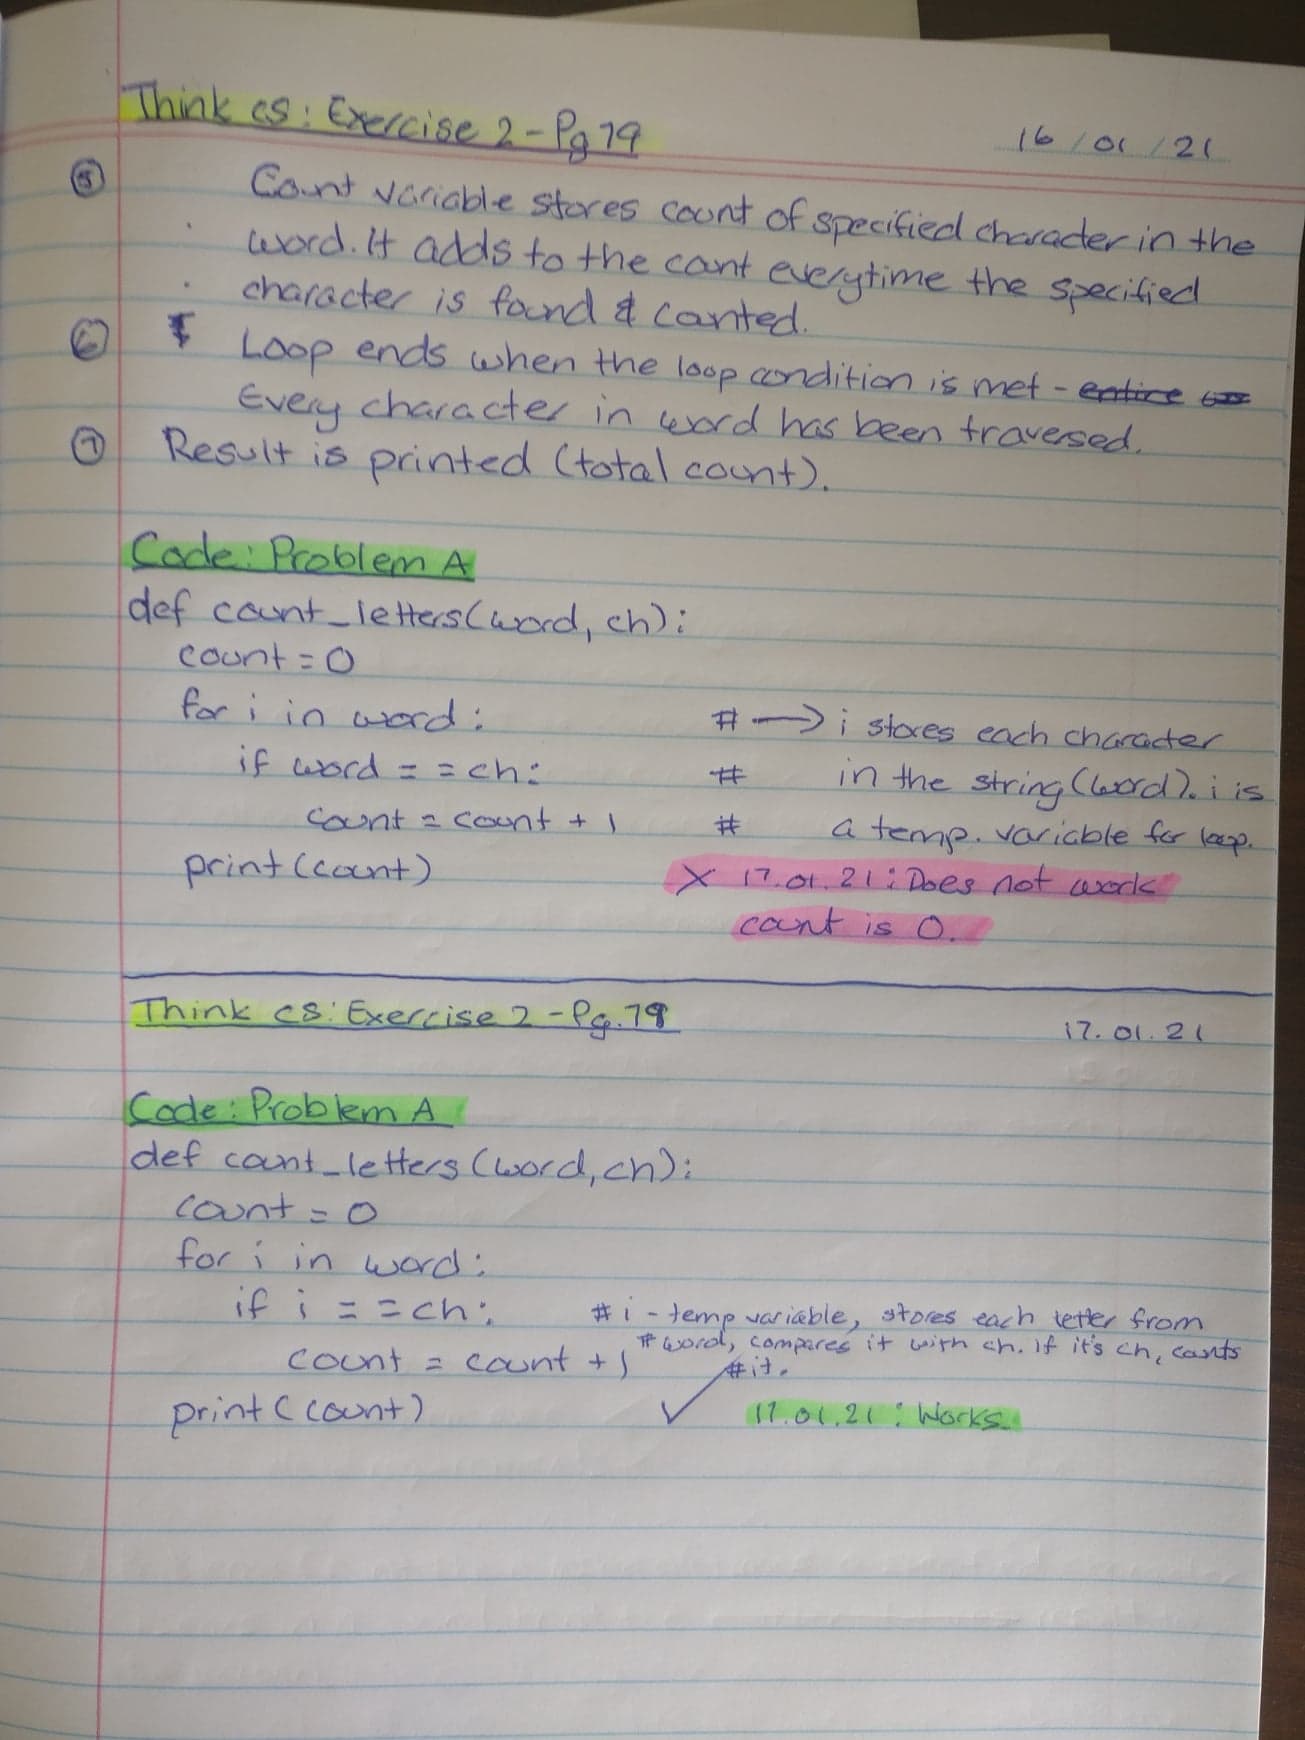 Think cs: Exercise 2 - Pg 79
16/01/21
⑤ Count variable stores count of specified character in the
word. It adds to the count everytime the specified
character is found & counted.
⑥ Loop ends when the loop condition is met - entire
Every character in word has been traversed.
⑦ Result is printed (total count).
Code: Problem A
def count_letters(word, ch):
count = 0
for i in word: # → i stores each character
if word == ch: # in the string (word). i is
count = count + 1 # a temp. variable for loop.
print(count) X 17.01.21: Does not work
count is 0.
Think CS: Exercise 2 - Pg. 79
17.01.21
Code: Problem A
def count_letters (word, ch):
count = 0
for i in word:
if i == ch: # i - temp variable, stores each letter from
# word, compares it with ch. If it's ch, counts
count = count + 1 # it.
print (count) ✓ 17.01.21: Works.